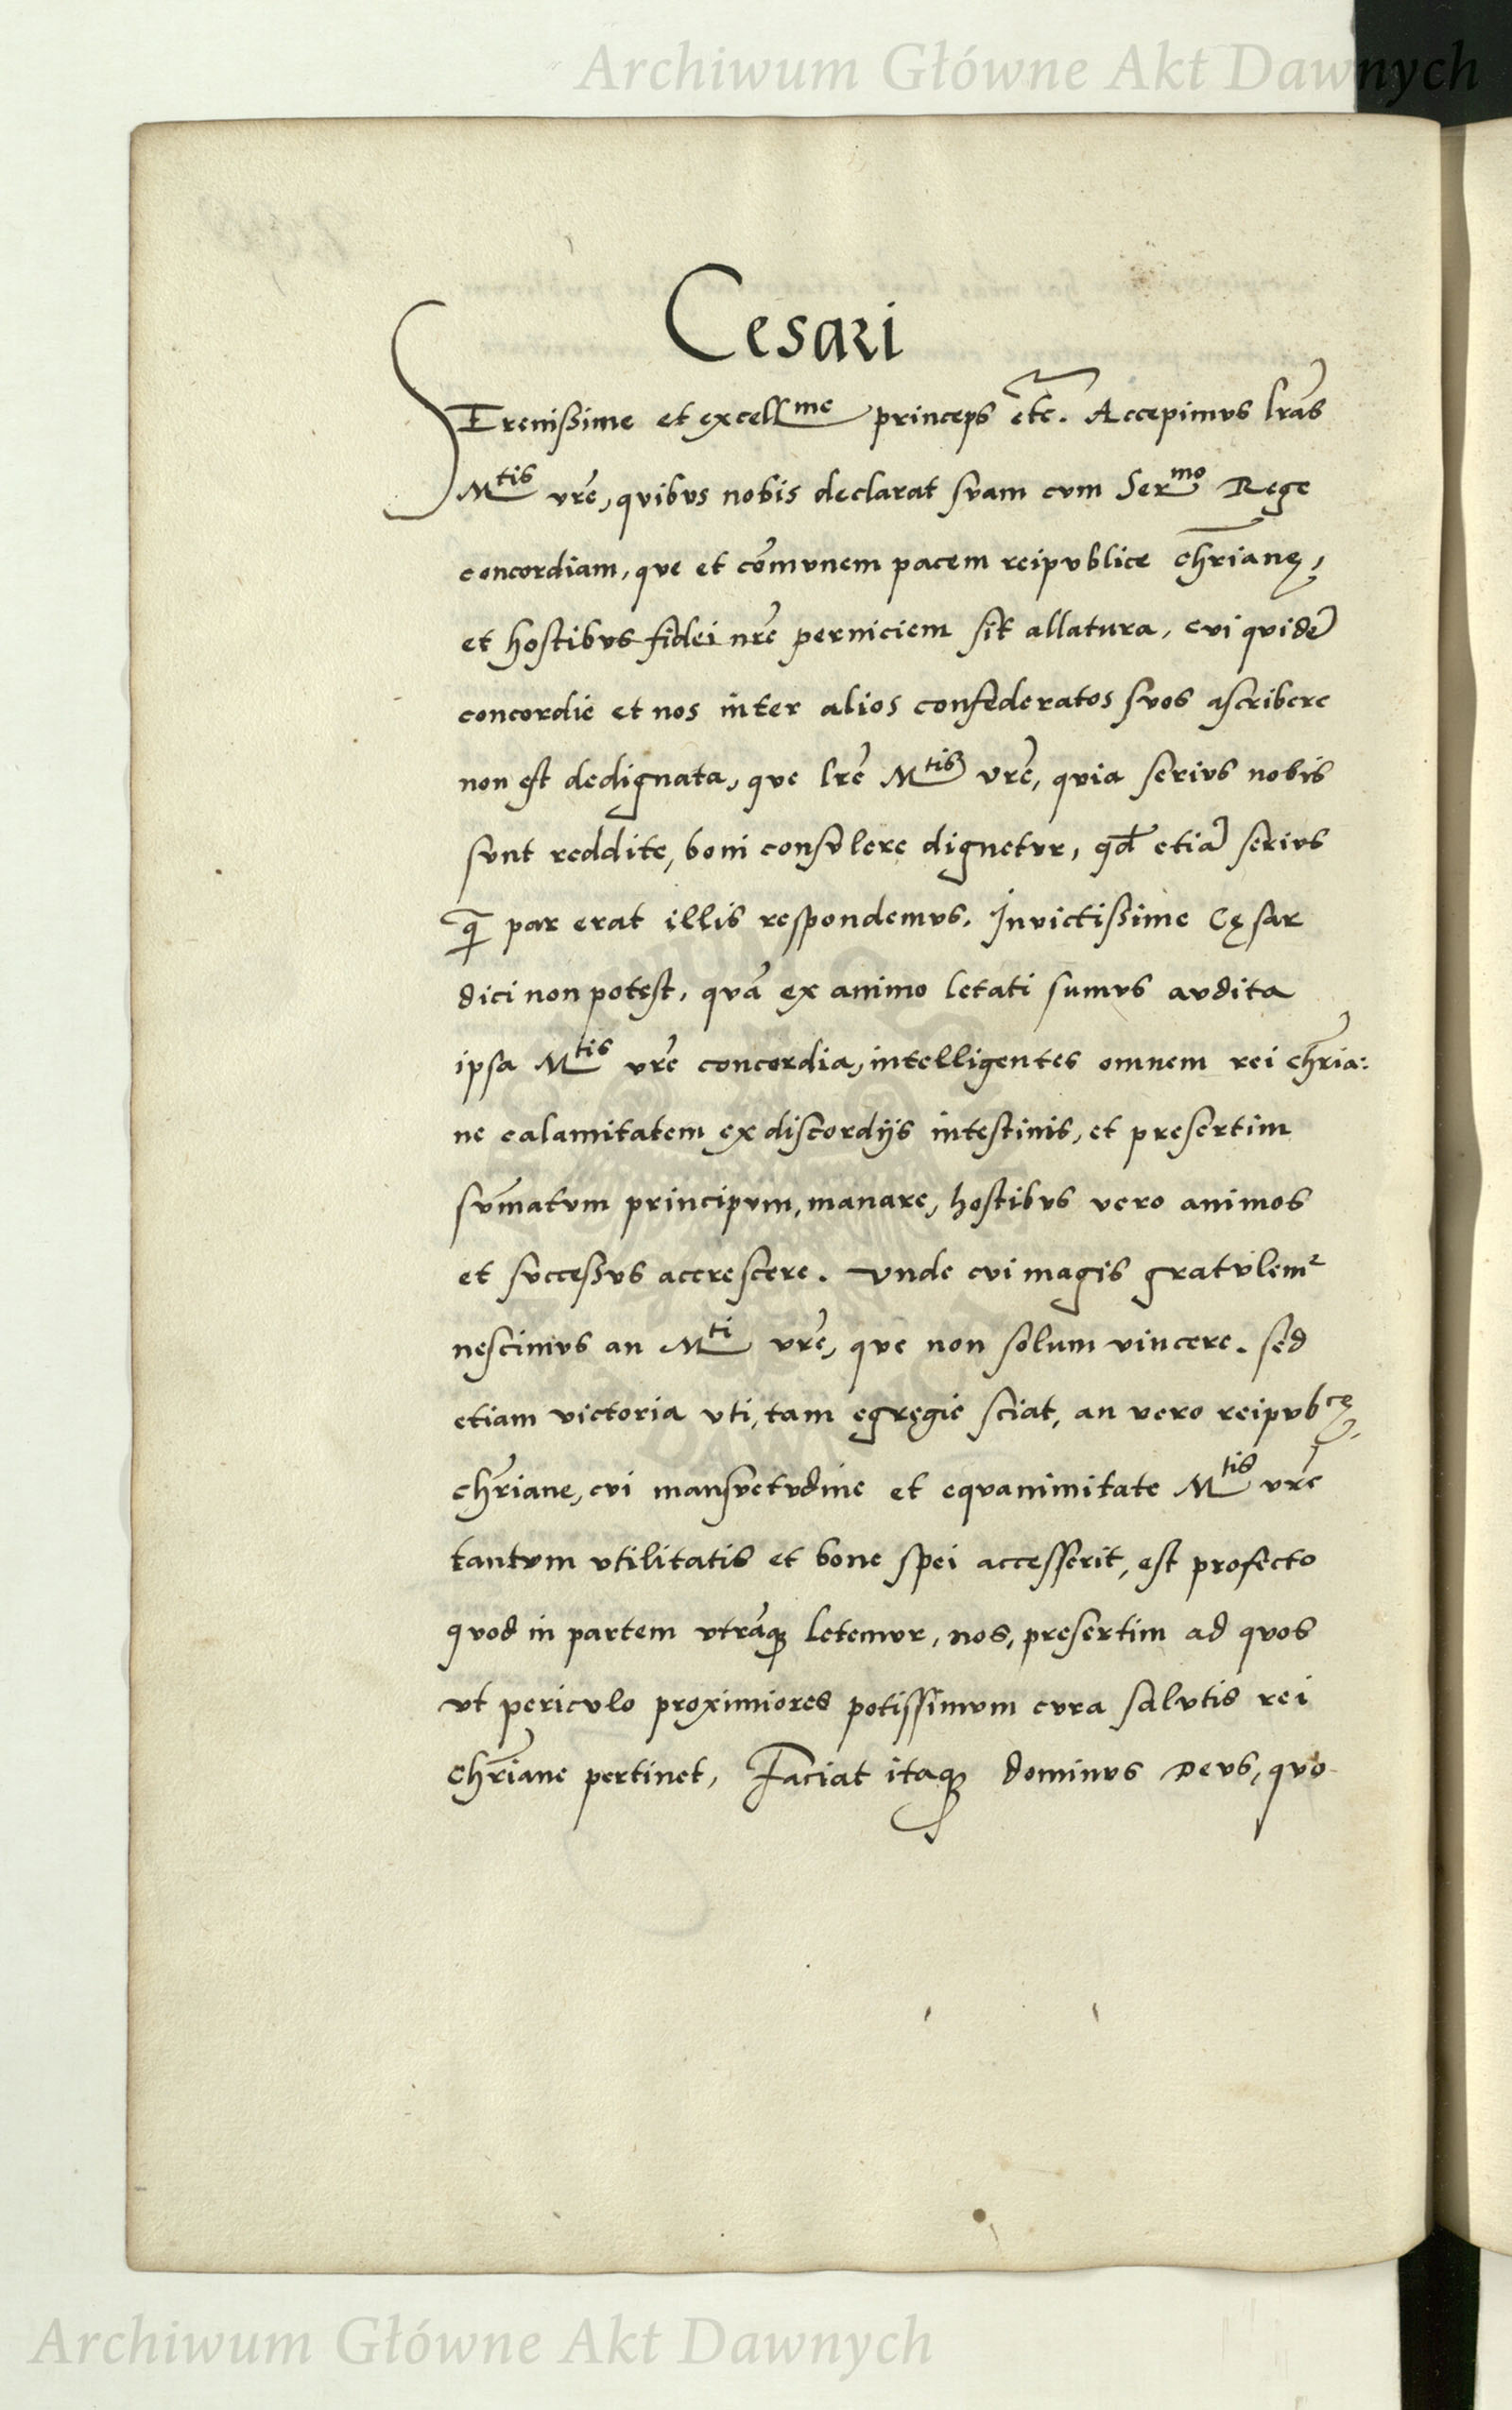 Archiwum Główne Akt Dawnych
Cesari
SErenissime et excell^me princeps etc. Accepimus lr̃as
M^tis vr̃e, quibus nobis declarat suam cum Ser^mo Rege
concordiam, que et com̃unem pacem reipublice chr̃ianę,
et hostibus fidei nr̃e perniciem sit allatura, cui quidē
concordie et nos inter alios confederatos suos ascribere
non est dedignata, que lr̃e M^tis vr̃e, quia serius nobis
sunt reddite, boni consulere dignetur, qđ etiā serius
q̃ par erat illis respondemus. Invictissime Cęsar
dici non potest, quā ex animo letati sumus audita
ipsa M^tis vr̃e concordia, intelligentes omnem rei chr̃ia:
ne calamitatem ex discordijs intestinis, et presertim
sum̃atum principum, manare, hostibus vero animos
et successus accrescere. Unde cui magis gratulem^r
nescimus an M^ti vr̃e, que non solum vincere. sed
etiam victoria uti, tam egręgie sciat, an vero reipub^cę
chr̃iane, cui mansuetudine et equanimitate M^tis vr̃e
tantum utilitatis et bone spei accesserit, est profecto
quod in partem utrāq; letemur, nos, presertim ad quos
ut periculo proximiores potissimum cura salutis rei
Chr̃iane pertinet, Faciat itaq; dominus Deus, quo
Archiwum Główne Akt Dawnych